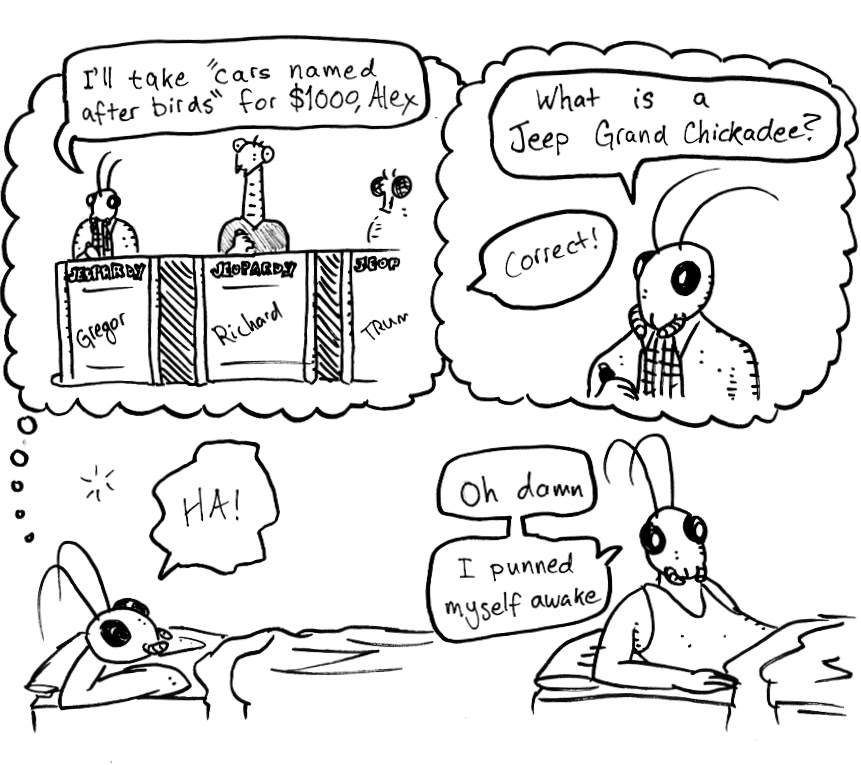 I'll take "cars named
after birds" for $1000, Alex
JEOPARDY
JEOPARDY
JEOP
Gregor
Richard
TRUM
What is a
Jeep Grand Chickadee?
Correct!
HA!
Oh damn
I punned
myself awake